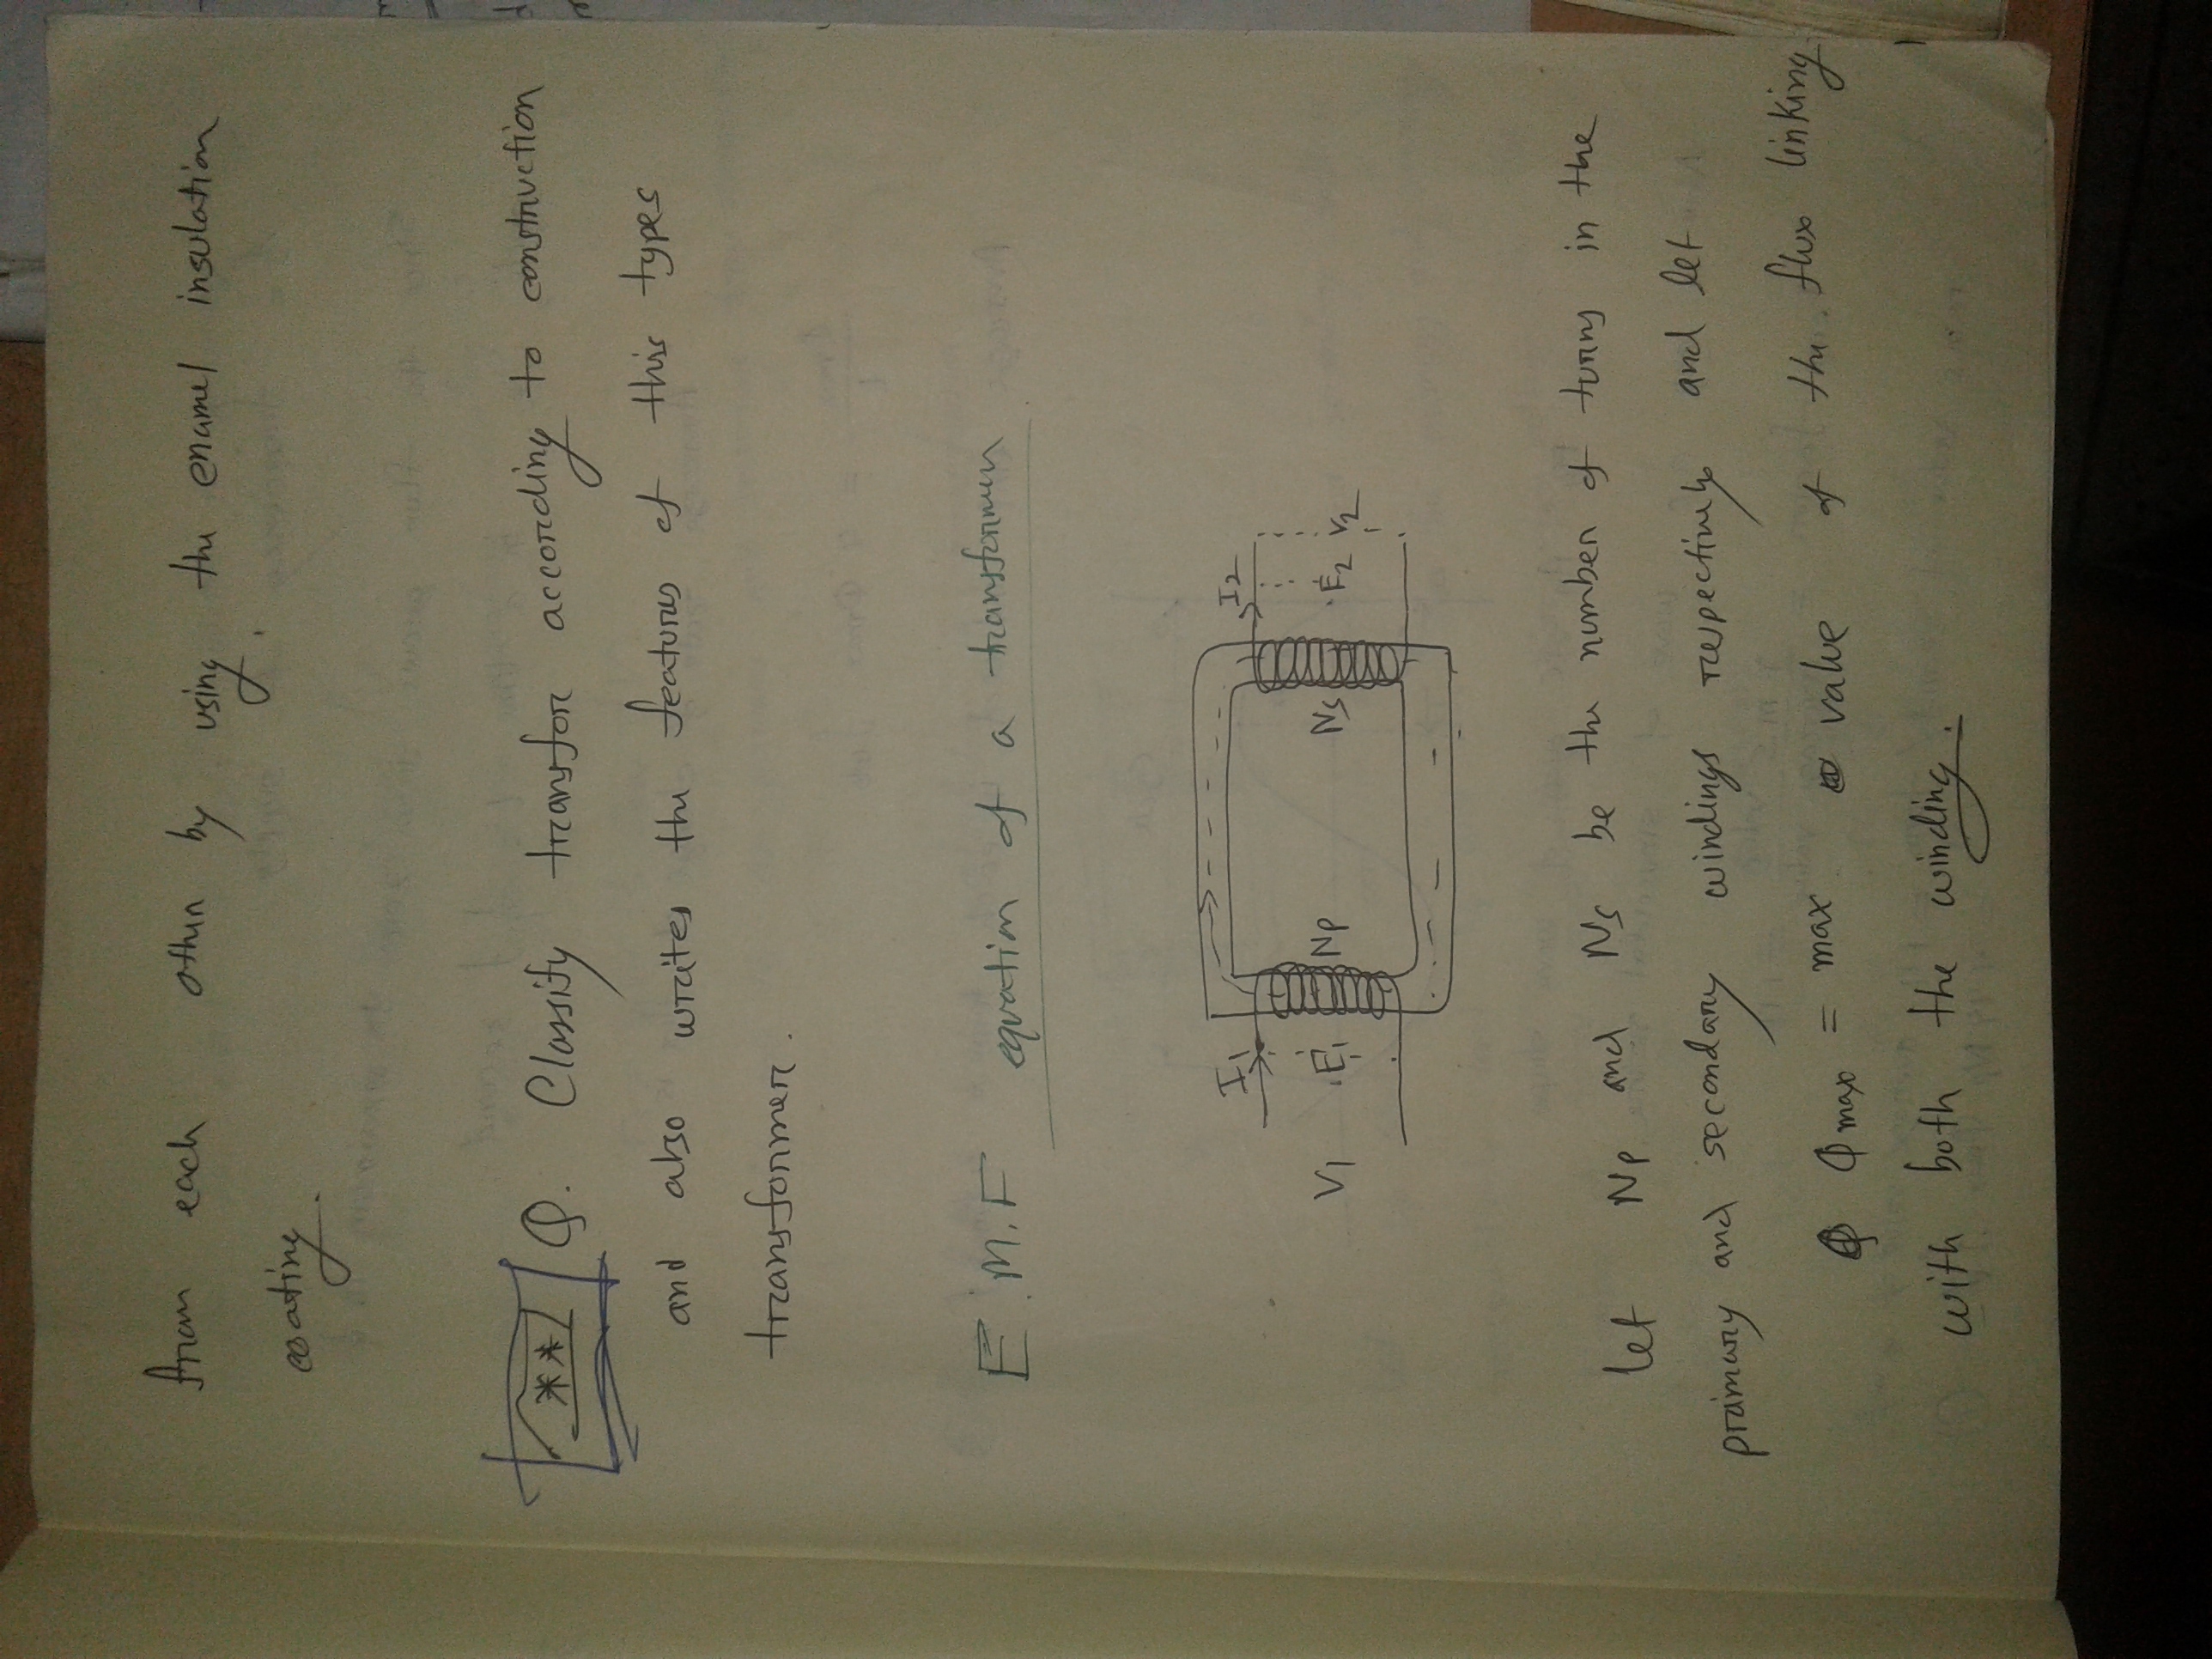 from each other by using the enamel insulation
coating.
** Q. Classify transfor according to construction
and also writes the features of this types
transformer.
E.M.F equation of a transformer
I1 I2
V1 E1 Np Ns E2 V2
let Np and Ns be the number of turns in the
primary and secondary windings respectively and let
Φmax = max value of the flux linking
with both the winding.